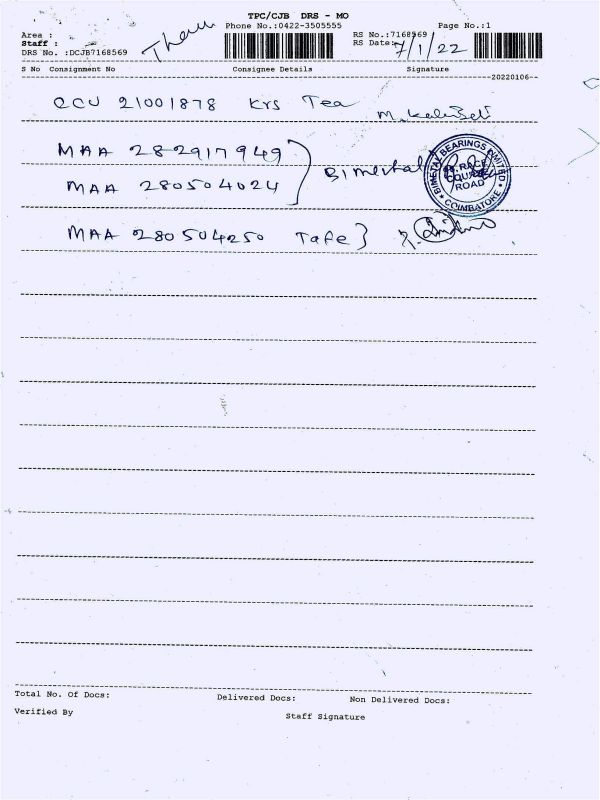 TPC/CJB DRS - MO
Phone No.:0422-3505555 Page No.:1
Area :
Staff :
DRS No. :DCJB7168569
RS No.:7168569
RS Date: 7/1/22
S No Consignment No Consignee Details Signature
20220106
CCU 21001878 Krs Tea
MAA 282917949
Bimental
MAA 280504024
BIMETAL BEARINGS LIMITED
RACE COURSE ROAD
COIMBATORE
MAA 280504250 Tafe
Total No. Of Docs: Delivered Docs: Non Delivered Docs:
Verified By Staff Signature